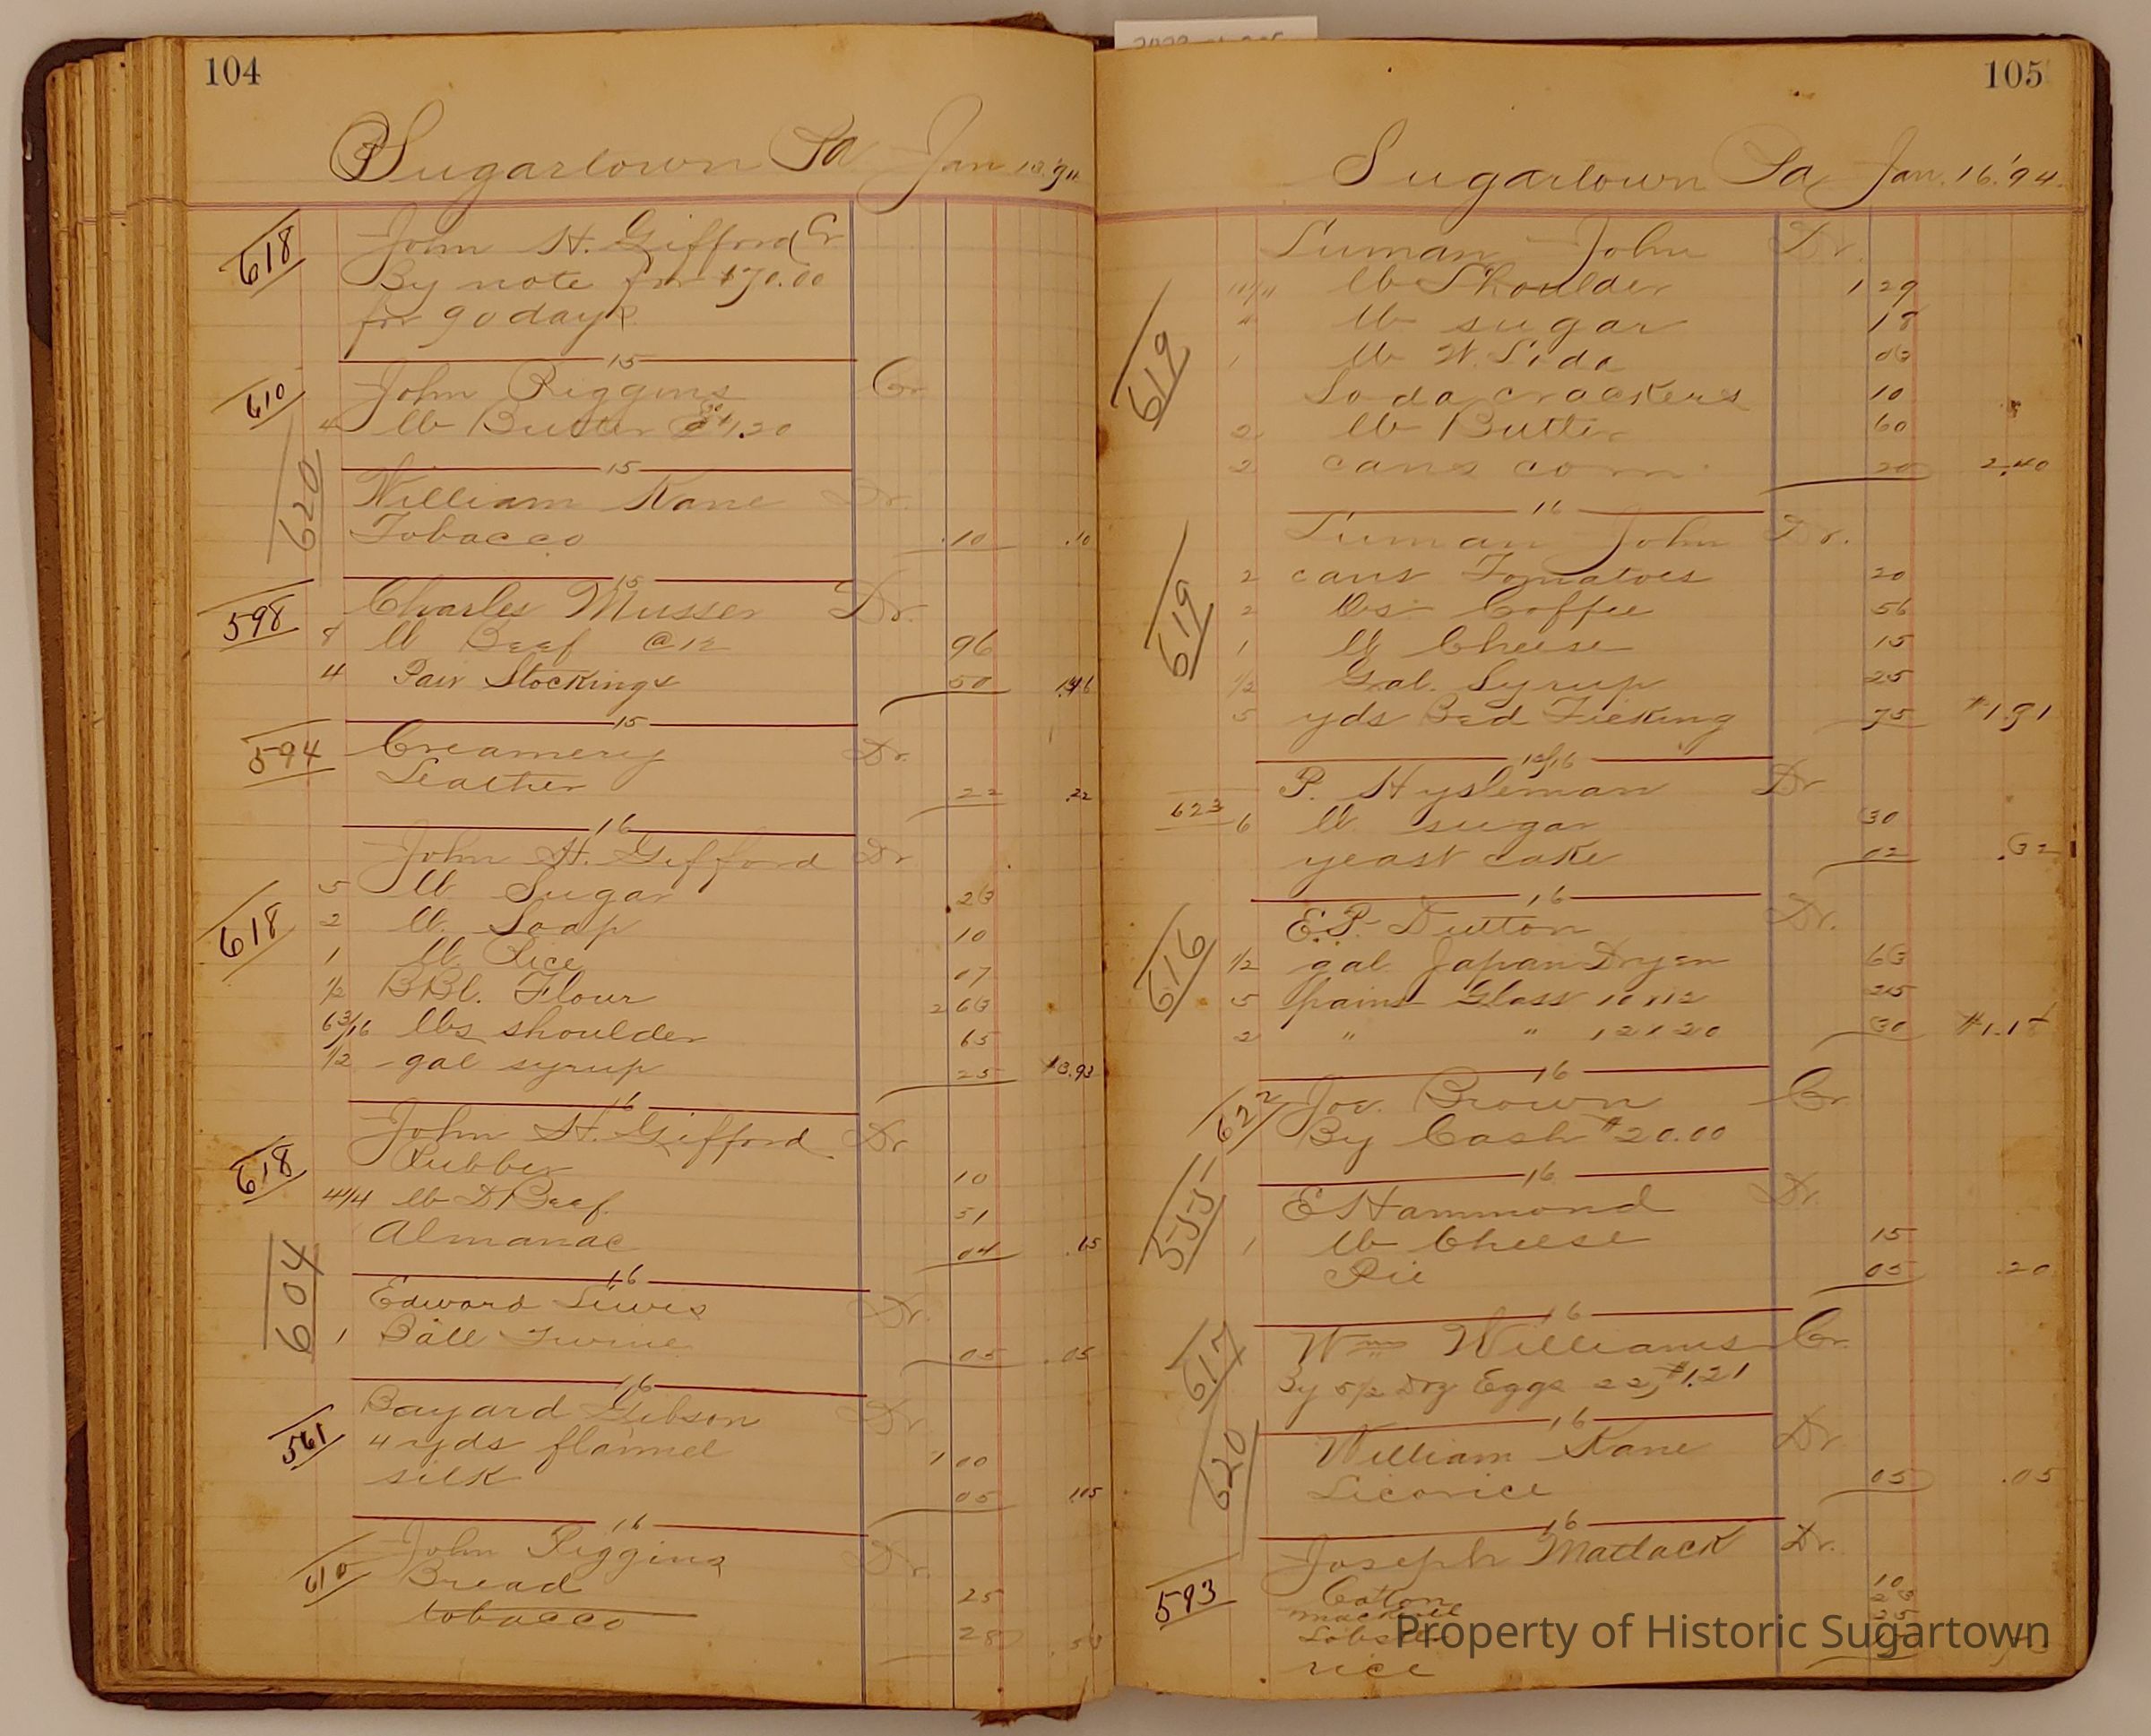 104
Sugartown Pa Jan 13 '94
618
John H. Gifford Cr
By note for $70.00
for 90 days
15
610
John Riggins Cr
4 lb Butter @ 30 $1.20
15
620
William Kane Dr.
Tobacco .10 .10
15
598
Charles Musser Dr.
8 lb Beef @12 96
4 Pair Stockings 50 1.46
15
594
Creamery Dr.
Leather 22 .22
16
John H. Gifford Dr
618
5 lb Sugar 23
2 lb. Soap 10
1 lb. Rice 07
1/2 BBl. Flour 2 63
6 3/16 lbs shoulder 65
1/2 gal syrup 25 $3.93
16
John H. Gifford Dr
618
Rubber 10
4 1/4 lb D Beef. 51
Almanac 04 .65
16
604
Edward Lewis Dr.
1 Ball Twine 05 .05
16
561
Bayard Gibson Dr
4 yds flannel 1 00
silk 05 1.05
16
610
John Riggins Dr.
Bread 25
tobacco 28 .53
105
Sugartown Pa Jan. 16. '94.
619
Suman John Dr.
lb Shoulder 1 29
lb sugar 18
1 lb W. Soda 03
Soda crackers 10
2 lb Butter 60
2 cans corn 20 2.40
16
619
Suman John Dr.
2 cans Tomatoes 20
2 lbs Coffee 56
1 lb Cheese 15
1/2 Gal. Syrup 25
5 yds Bed Ticking 75 $1.91
16
P. Hysleman Dr
623
6 lb sugar 30
yeast cake 02 .32
16
616
E.P. Dutton Dr.
1/2 gal Japan Dryer 63
5 pains Glass 10x12 25
2 " " 12x20 30 $1.18
16
622
Jos. Brown Cr
By Cash $20.00
16
555
E Hammond Dr.
1 lb Cheese 15
Pie 05 .20
16
617
Wm Williams Cr.
By 5 1/2 Doz Eggs 22, $1.21
16
620
William Kane Dr
Licorice 05 .05
16
593
Joseph Matlack Dr.
10
Lobster
rice
Property of Historic Sugartown